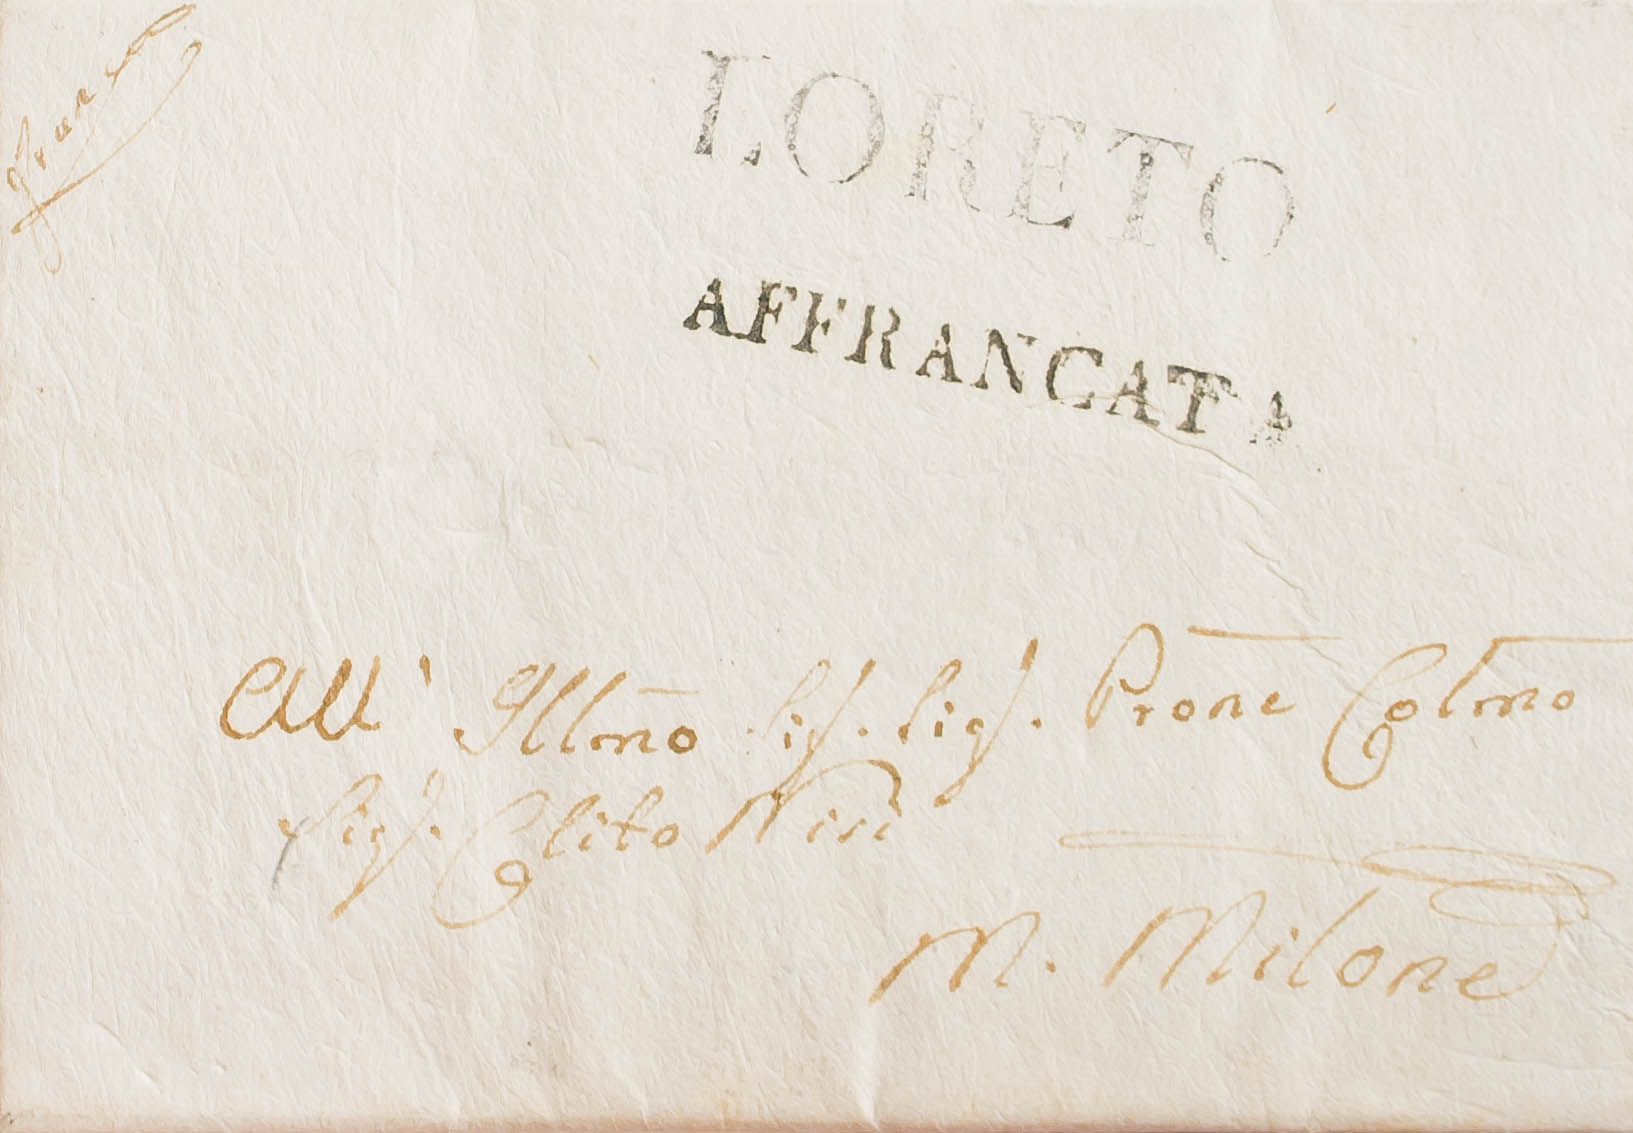 Franca
LORETO
AFFRANCATA
All' Illmo Sig. Sig. Prone Colmo
Sig. Clito Nisi
M. Milone